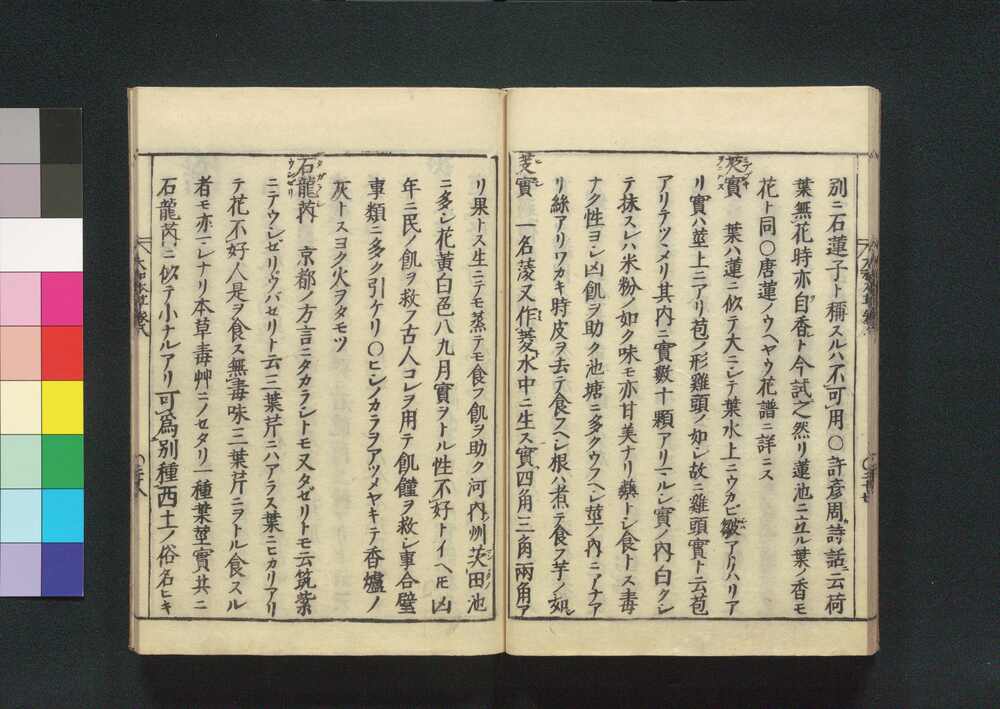 別ニ石蓮子ト稱スルハ不可用〇許彦周詩話ニ云荷
葉無花時亦自香ト今試之然リ蓮池ニ立ル葉ノ香モ
花ト同〇唐蓮ノウヘヤウ花譜ニ詳ニス
芡實 葉ハ蓮ニ似テ大ニシテ葉水上ニウカビ皺アリハリア
リ實ハ莖上ニアリ苞ノ形雞頭ノ如シ故ニ雞頭實ト云苞
アリテツメリ其内ニ實數十顆アリマルシ實ノ内白クシ
テ抹スレハ米粉ノ如ク味モ亦甘美ナリ藕トシ食トス毒
ナク性ヨシ凶飢ヲ助ク池塘ニ多クウフヘシ莖ノ内ニアナア
リ絲アリワカキ時皮ヲ去テ食フヘシ根ハ煮テ食フ芋ノ如シ
芰實 一名蔆又作菱水中ニ生ス實四角三角兩角ア
リ果トス生ニテモ蒸テモ食フ飢ヲ助ク河内ノ州茨田池
ニ多シ花黃白色八九月實ヲトル性不好トイヘ𪜈凶
年ニ民ノ飢ヲ救フ古人コレヲ用テ飢饉ヲ救シ事合璧
事類ニ多ク引ケリ〇ヒシノカラヲアツメヤキテ香爐ノ
灰トスヨク火ヲタモツ
石龍芮 京都ノ方言ニタカラシトモ又タゼリトモ云筑紫
ニテウシゼリウバセリト云三葉芹ニハアラス葉ニヒカリアリ
テ花不好人是ヲ食ス無毒味三葉芹ニヲトル食スル
者モ亦マレナリ本草毒艸ニノセタリ一種葉莖實共ニ
石龍芮ニ似テ小ナルアリ可爲別種西土ノ俗名ヒキ